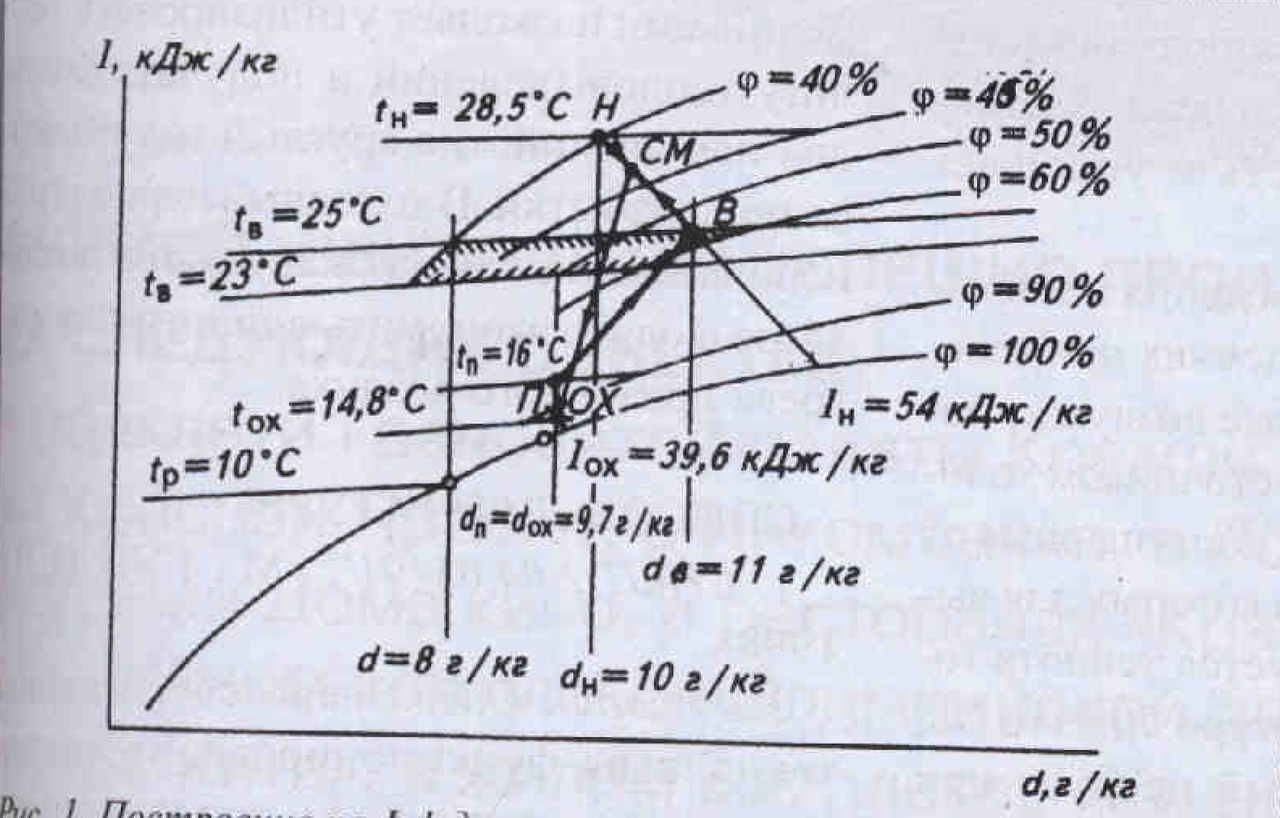 I, кДж/кг
φ=40%
tн= 28,5°C H
φ=45%
СМ
φ=50%
φ=60%
tв=25°C
В
tв=23°C
φ=90%
tп=16°C
φ=100%
tох=14,8°C
П
ОХ
Iн=54 кДж/кг
tр=10°C
Iох=39,6 кДж/кг
dп=dох=9,7г/кг
dв=11 г/кг
d=8 г/кг
dн=10 г/кг
d,г/кг
Рис. 1. Построение на I-d-